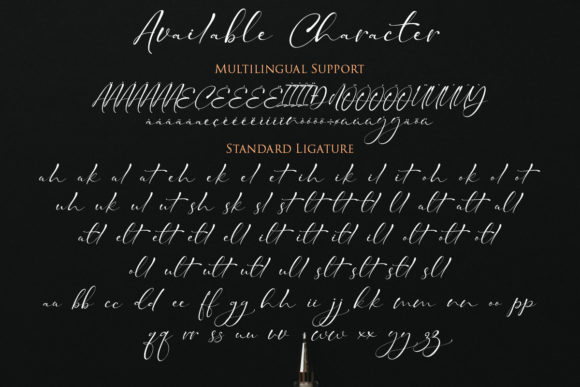 Available Character
MULTILINGUAL SUPPORT
STANDARD LIGATURE
ah ak al at eh ek el et ih ik il it oh ok ol ot
uh uk ul ut sh sk sl st lt tt tl ll alt att all
atl elt ett etl ell ilt itt itl ill olt ott otl
oll ult utt utl ull slt stt stl sll
aa bb cc dd ee ff gg hh ii jj kk mm nn oo pp
qq rr ss uu vv ww xx yy zz